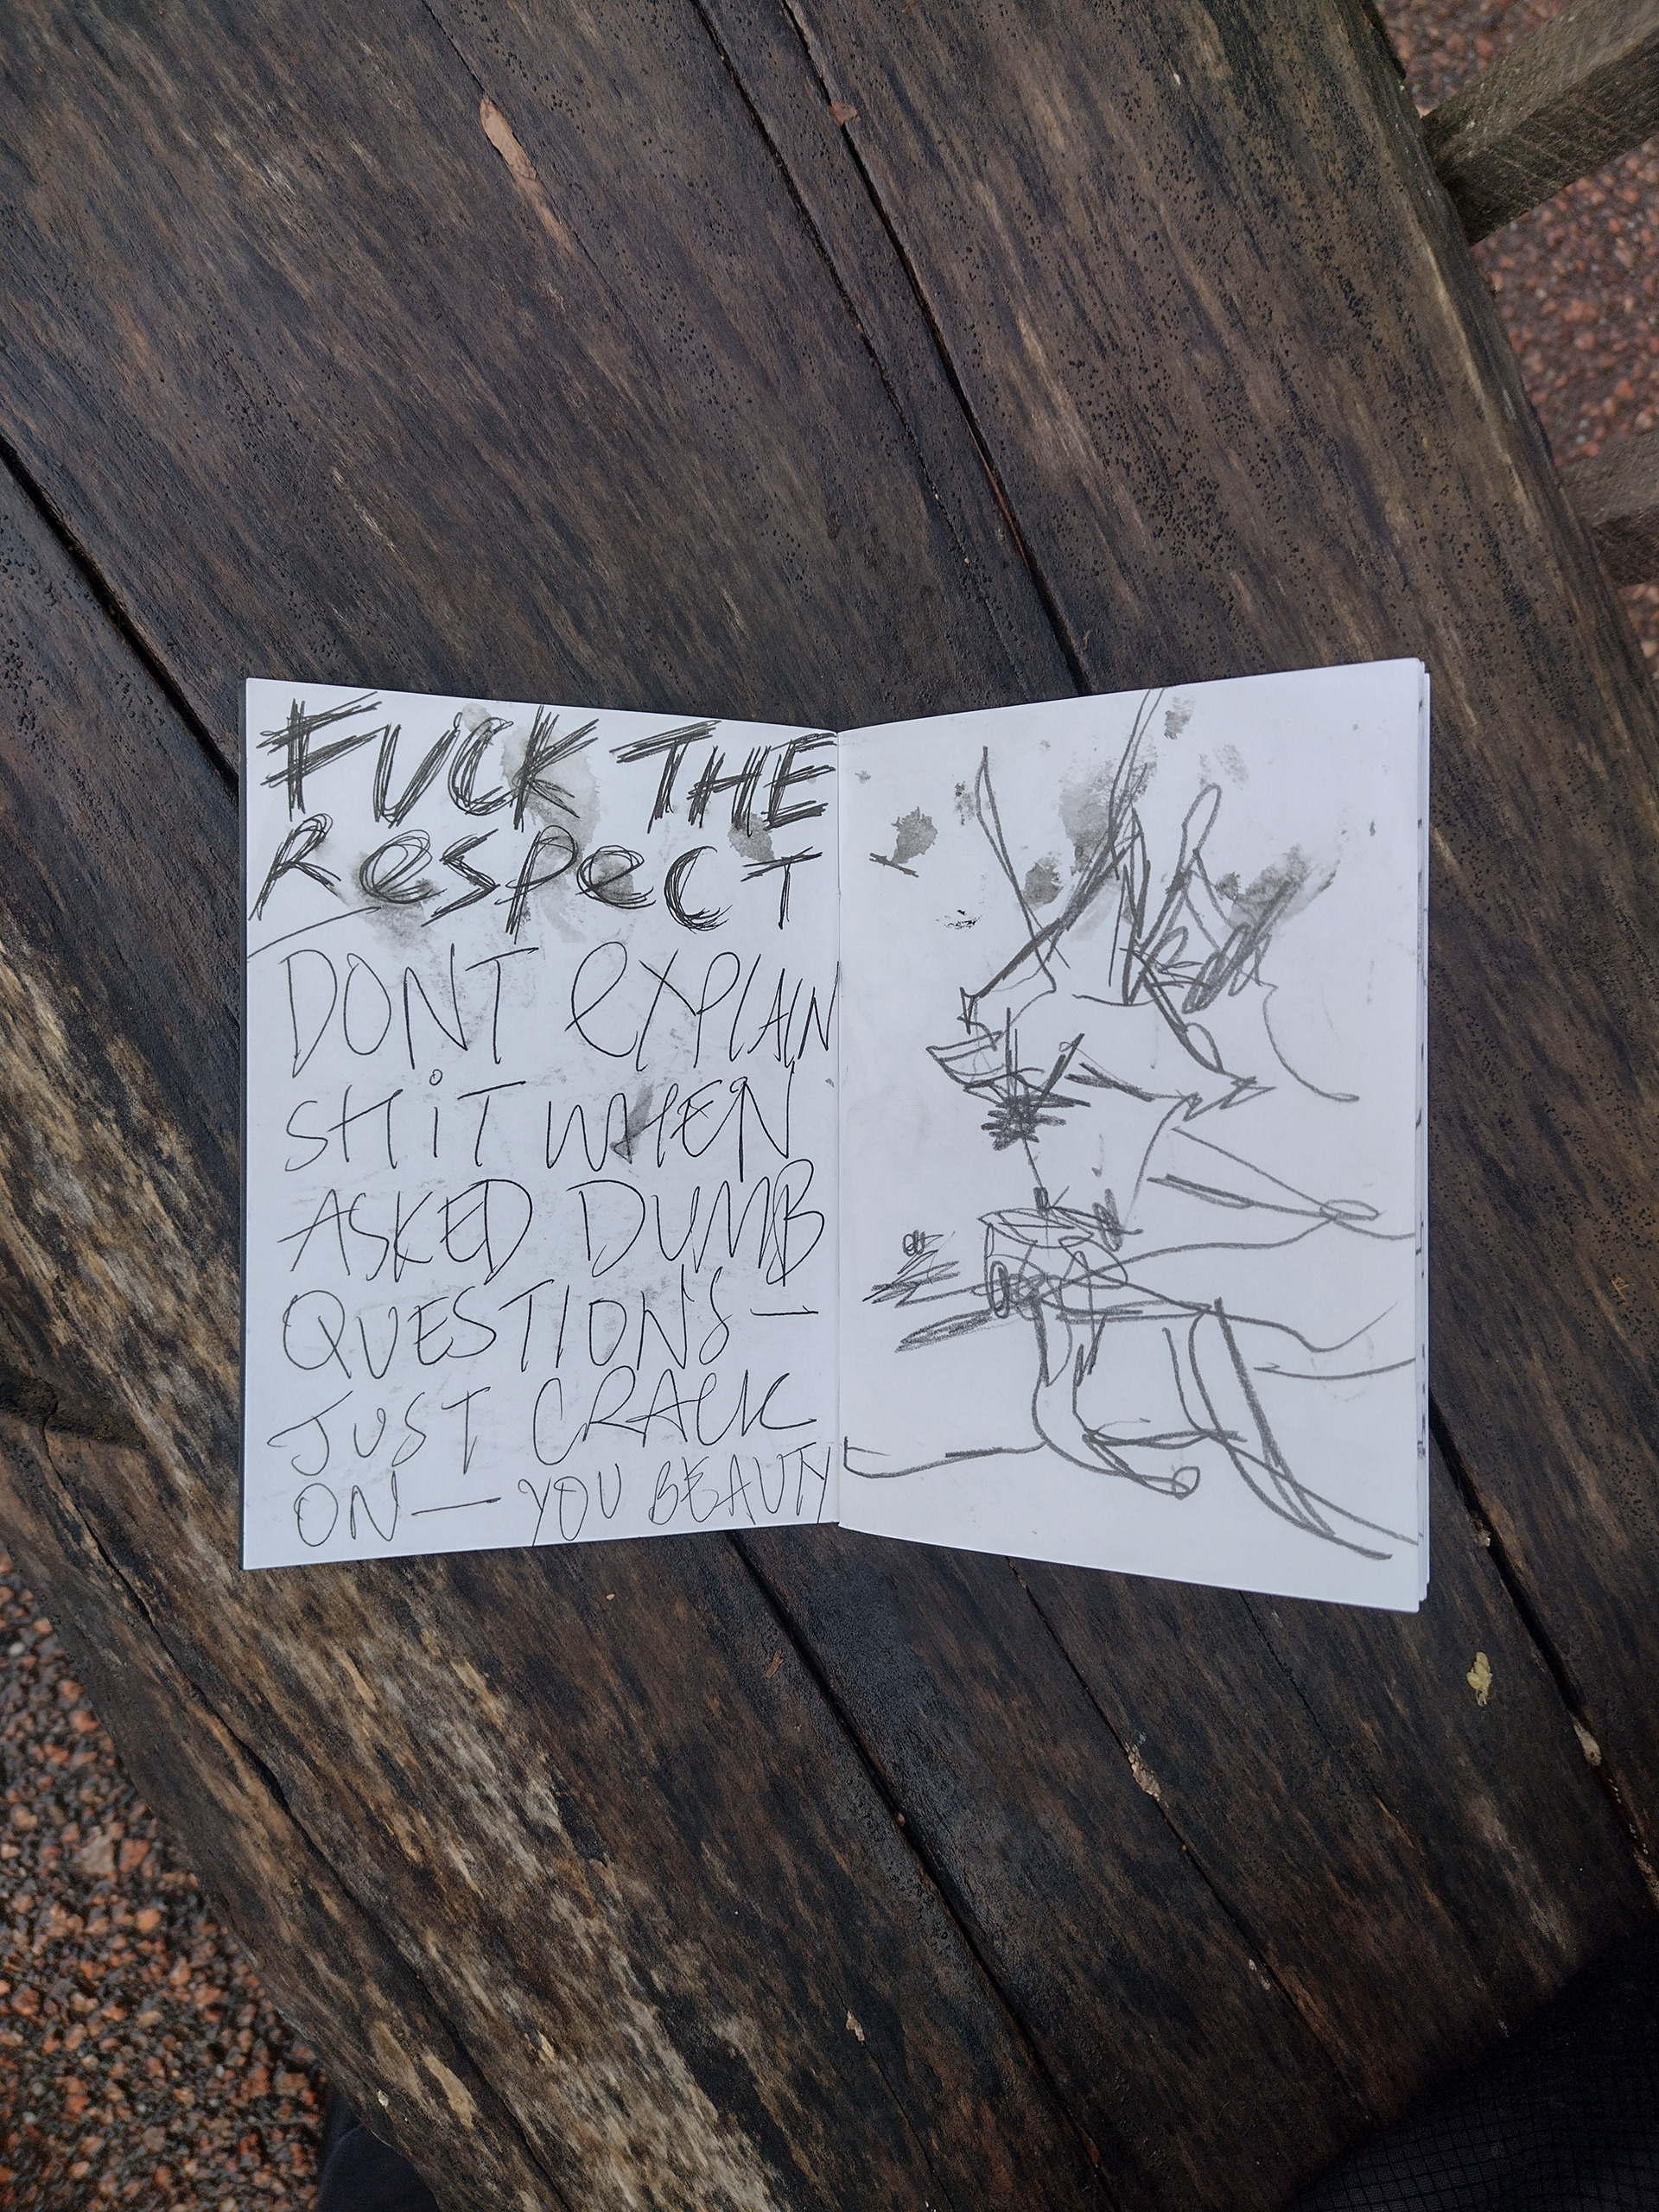 FUCK THE
ResPeCT
DONT eXPlAIN
SHiT WHEN
ASKED DUMB
QUESTIONS —
JUST CRACK
ON — YOU BEAUTY